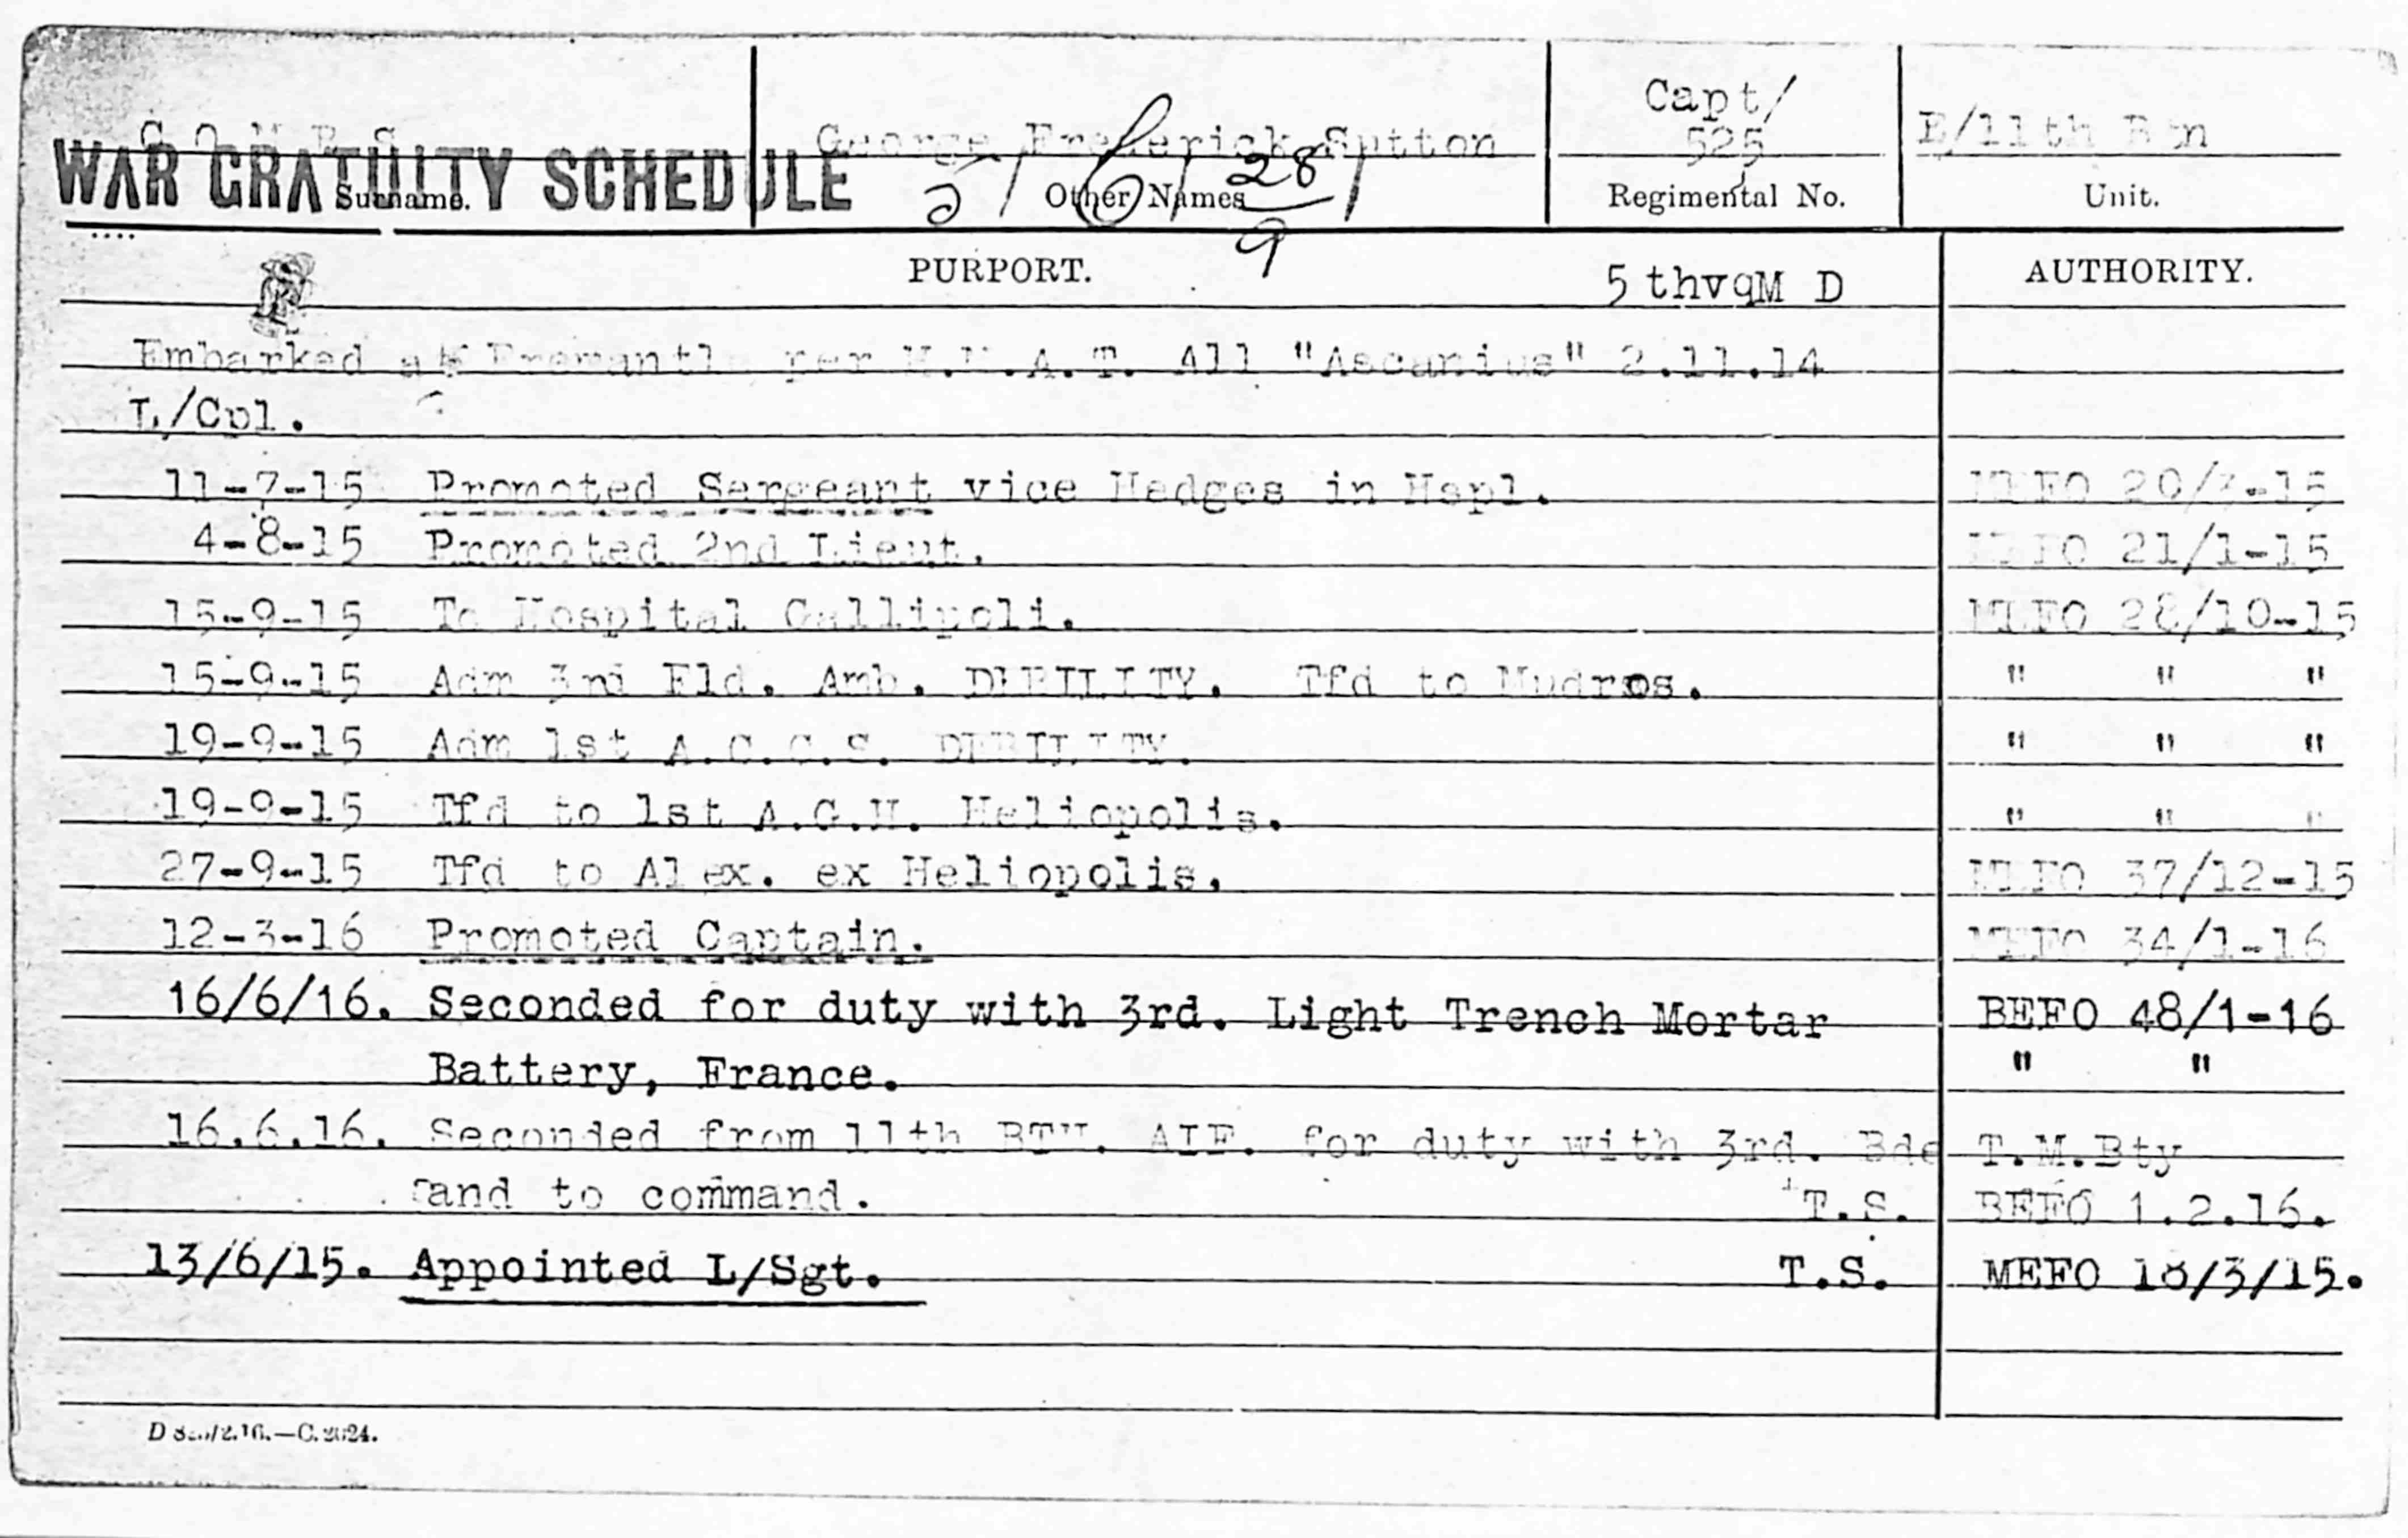 Capt/
George Frederick Sutton 525 E/11th Bn
WAR GRATUITY SCHEDULE
Surname. Other Names Regimental No. Unit.
28
9
PURPORT. AUTHORITY.
5thvqM D
Embarked at Fremantle per H.M.A.T. A11 "Ascanius" 2.11.14
L/Cpl.
11-7-15 Promoted Sergeant vice Hedges in Hspl. MEFO 20/3-15
4-8-15 Promoted 2nd Lieut. MEFO 21/1-15
15-9-15 To Hospital Gallipoli. MEFO 28/10-15
15-9-15 Adm 3rd Fld. Amb. DEBILITY. Tfd to Mudros. " " "
19-9-15 Adm 1st A.C.C.S. DEBILITY. " " "
19-9-15 Tfd to 1st A.G.H. Heliopolis. " " "
27-9-15 Tfd to Alex. ex Heliopolis. MEFO 37/12-15
12-3-16 Promoted Captain. MEFO 34/1-16
16/6/16. Seconded for duty with 3rd. Light Trench Mortar BEFO 48/1-16
Battery, France. " "
16.6.16. Seconded from 11th BTN. AIF. for duty with 3rd. Bde T.M.Bty
and to command. T.S. BEFO 1.2.16.
13/6/15. Appointed L/Sgt. T.S. MEFO 18/3/15.